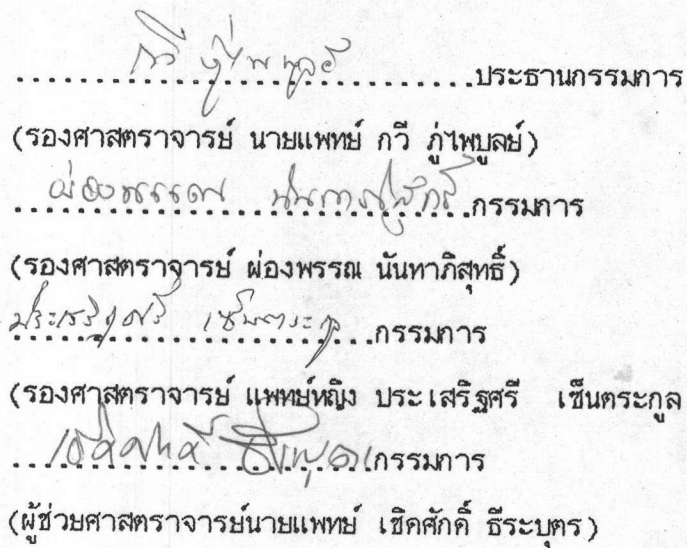 กวี ภู่ไพบูลย์
........................................ประธานกรรมการ
(รองศาสตราจารย์ นายแพทย์ กวี ภู่ไพบูลย์)
ผ่องพรรณ นันทาภิสุทธิ์
........................................กรรมการ
(รองศาสตราจารย์ ผ่องพรรณ นันทาภิสุทธิ์)
ประเสริฐศรี เซ็นตระกูล
................................กรรมการ
(รองศาสตราจารย์ แพทย์หญิง ประเสริฐศรี เซ็นตระกูล
................................กรรมการ
(ผู้ช่วยศาสตราจารย์นายแพทย์ เชิดศักดิ์ ธีระบุตร)